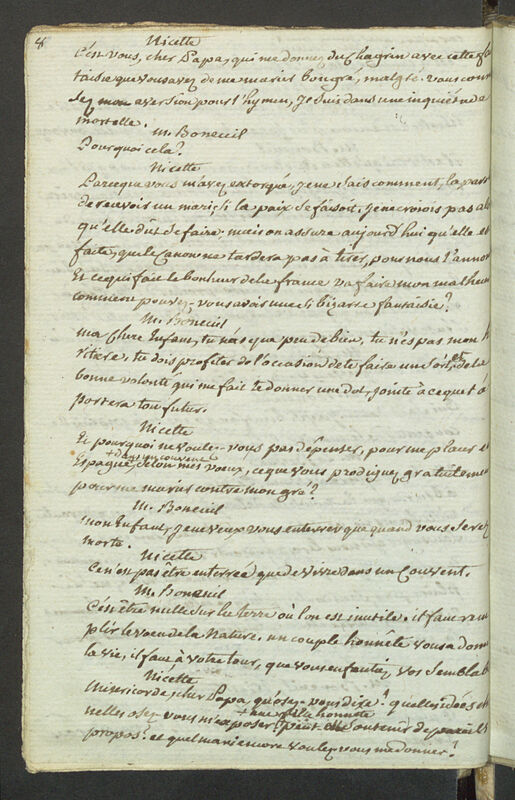 8
Nicette
C'est vous, cher Papa, qui me donnez du chagrin avec cette fan
taisie que vous avez de me marier bon gré, malgré. vous connois
sez mon aversion pour l'hymen, je suis dans une inquiétude
mortelle.
M. Boneuil
Pourquoi cela?
Nicette
Parceque vous m'avez extorqué, je ne sais comment, la parole
de recevoir un mari, si la paix se faisoit. je ne croiois pas alors
qu'elle dût se faire. mais on assure aujourd'hui qu'elle est
faite, que le Canon ne tardera pas à tirer, pour nous l'annoncer
Et ce qui fait le bonheur de la france va faire mon malheur
comment pouvez-vous avoir une si bizarre fantaisie?
M. Boneuil
ma chere Enfant, tu n'as que peu de bien, tu n'es pas mon hé
ritiere, tu dois profiter de l'occasion de te faire un sort, et de la
bonne volonté qui me fait te donner une dot, jointe à ce que t'a
portera ton futur.
Nicette
Et pourquoi ne voulez-vous pas dépenser, pour me placer en
Espagne + dans un couvent selon mes voeux, ce que vous prodiguez gratuitement
pour me marier contre mon gré?
M. Boneuil
mon Enfant, je ne veux vous enterrer que quand vous serez
morte.
Nicette
Ce n'est pas être enterrée que de vivre dans un Couvent.
M. Boneuil
C'est être nulle sur la terre où l'on est inutile. il faut rem
plir le voeu de la Nature. un couple honnête vous a donné
la vie, il faut à votre tour, que vous enfantiez vos semblables
Nicette
Misericorde, cher Papa, qu'osez-vous dire? quelles idées
nelles osez-vous m'exposer! + une fille honnête peut-elle soutenir de pareils
propos? et quel mari encore voulez-vous me donner?